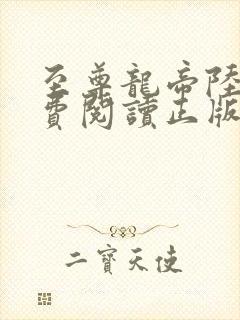 至尊龍帝陸
費閱讀正版
二寶天使